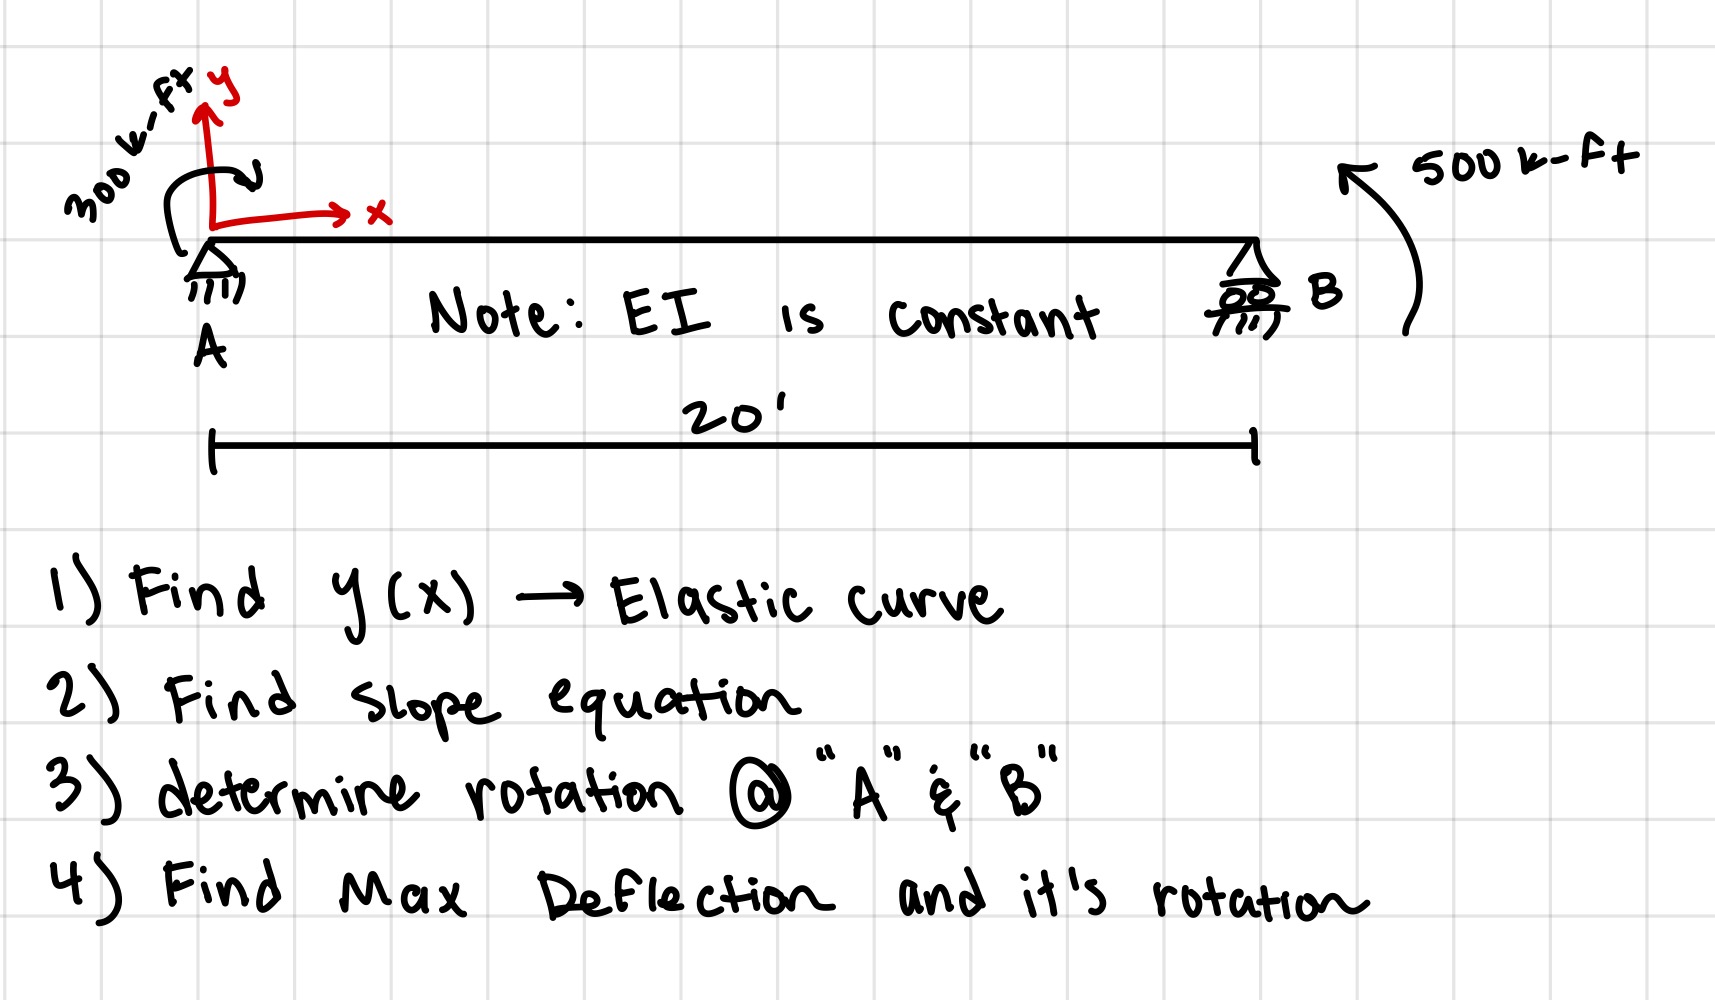 300 k-ft
y
x
500 k-ft
B
Note: EI is constant
A
20'
1) Find y(x) → Elastic curve
2) Find slope equation
3) determine rotation @ "A" & "B"
4) Find Max Deflection and it's rotation